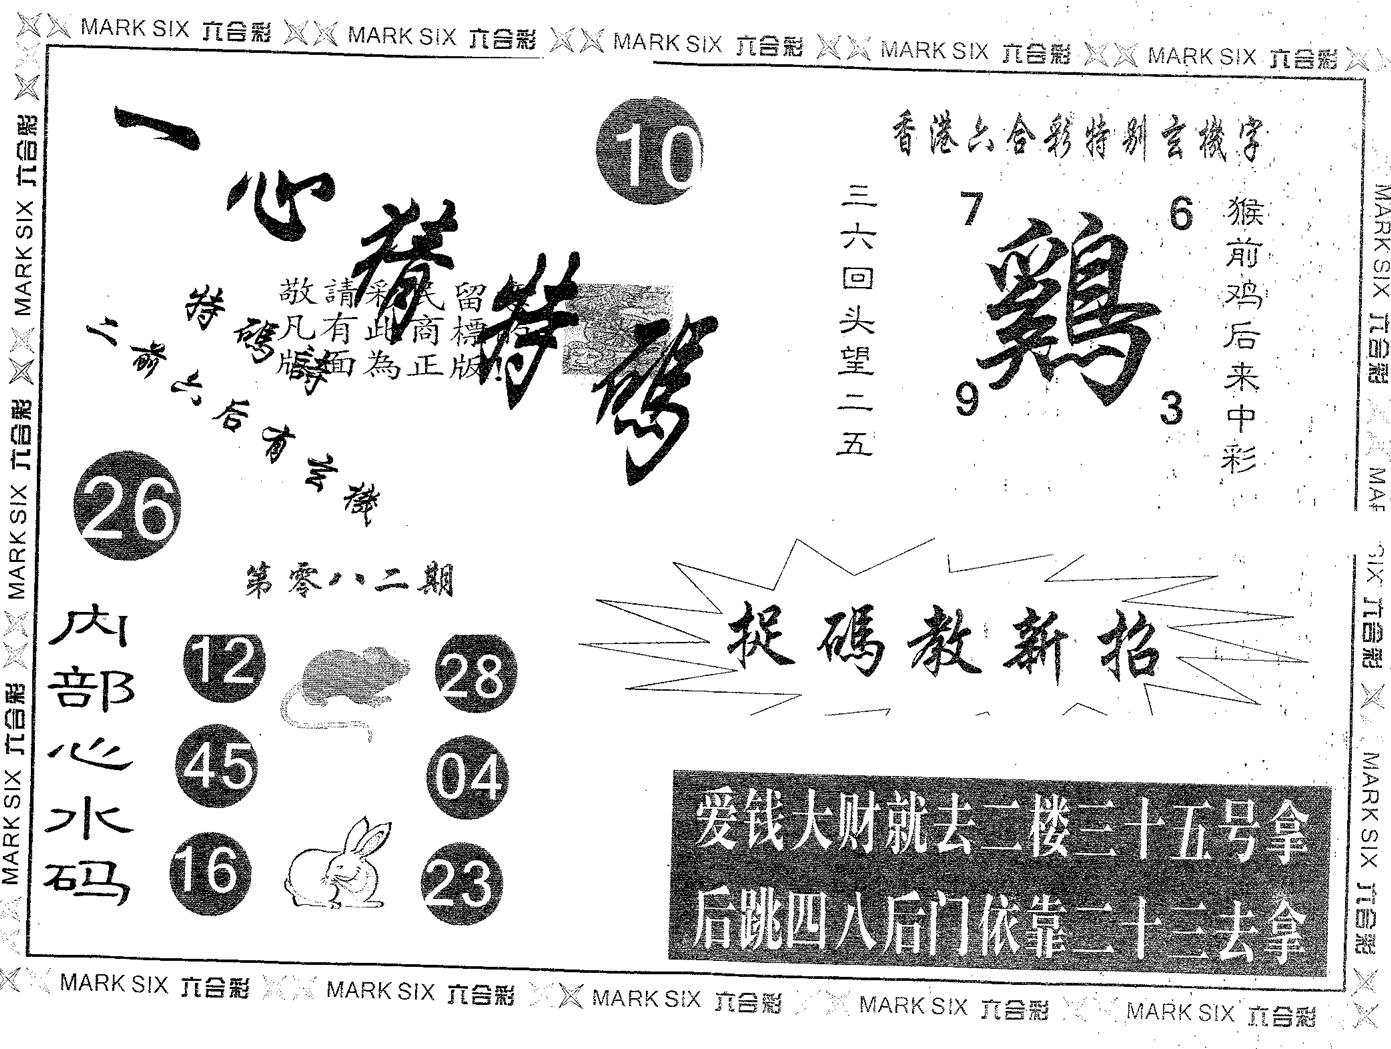 MARK SIX 六合彩 MARK SIX 六合彩 MARK SIX 六合彩 MARK SIX 六合彩 MARK SIX 六合彩
一心猜特碼
10
香港六合彩特别玄機字
三六回头望二五
7
6
鷄
9
3
猴前鸡后来中彩
敬請彩民留
凡有此商標
版面為正版!
特碼詩
二前六后有玄機
26
第零八二期
内部心水码
12
28
45
04
16
23
捉碼教新招
爱钱大财就去二楼三十五号拿
后跳四八后门依靠二十三去拿
MARK SIX 六合彩 MARK SIX 六合彩 MARK SIX 六合彩
MARK SIX 六合彩 MAR SIX 六合彩 MARK SIX 六合彩
MARK SIX 六合彩 MARK SIX 六合彩 MARK SIX 六合彩 MARK SIX 六合彩 MARK SIX 六合彩